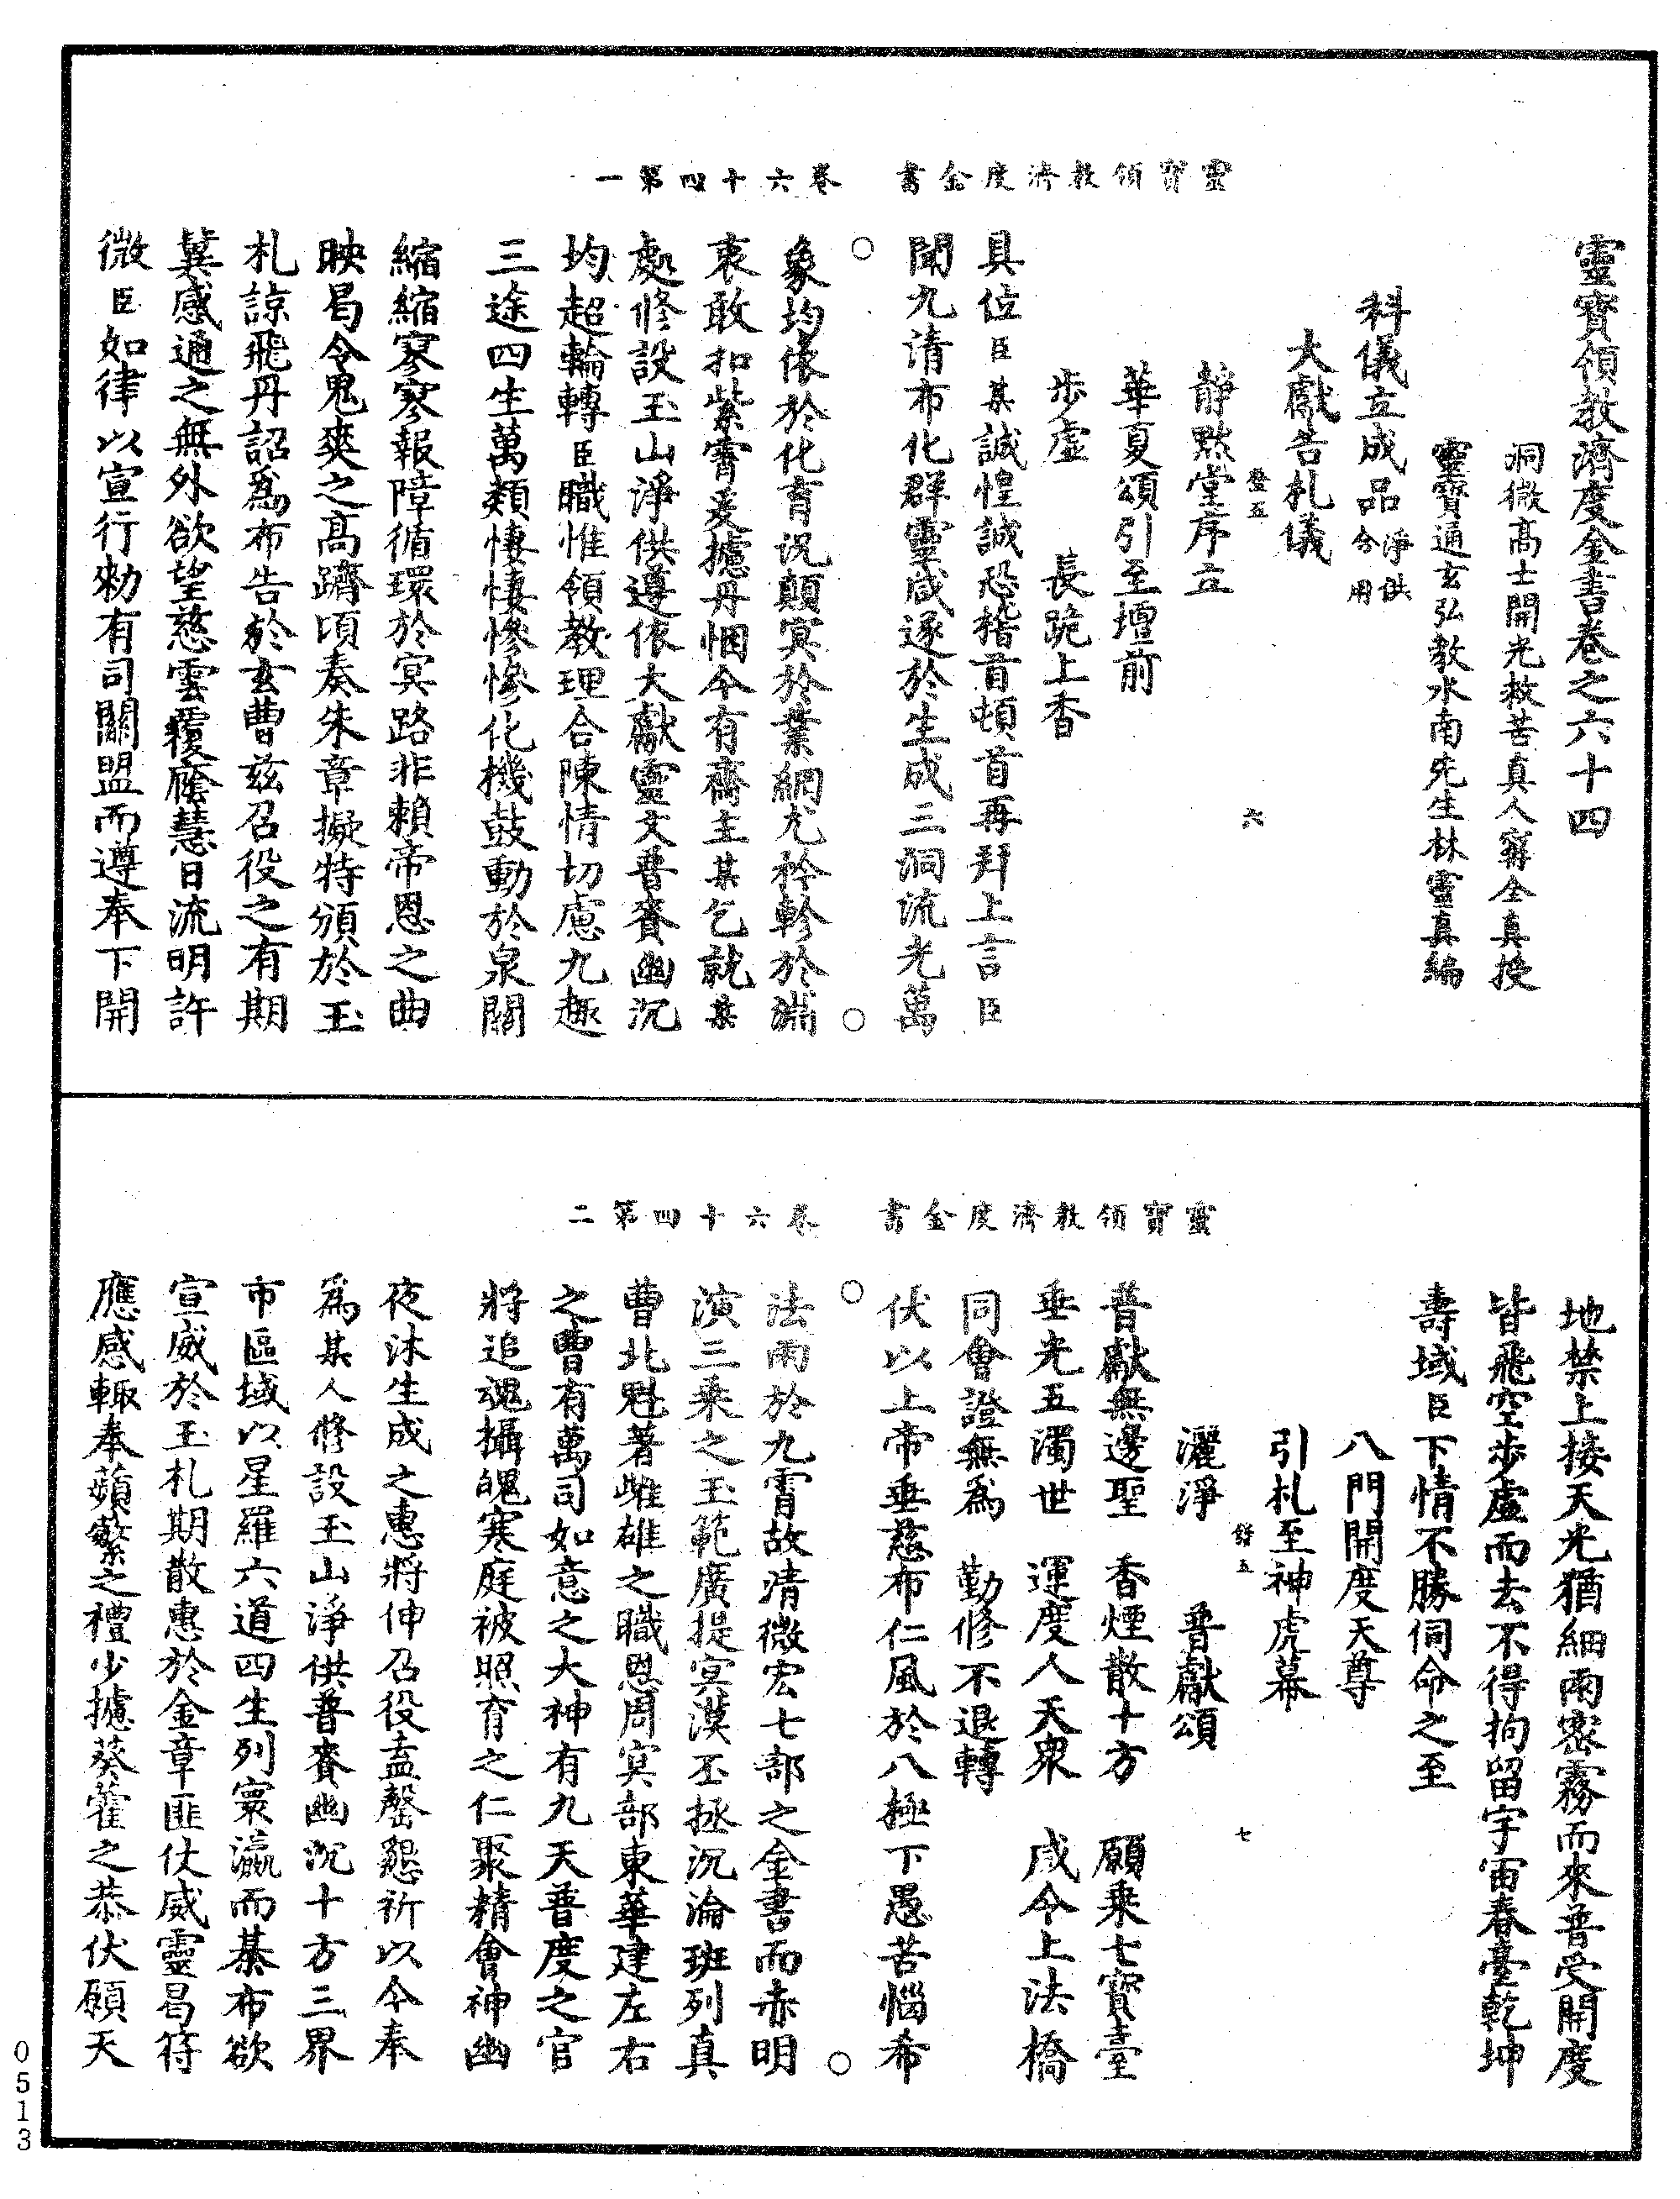 靈寶領教濟度金書　卷六十四第一
靈寶領教濟度金書卷之六十四
洞微高士開光救苦真人甯全真授
靈寶通玄弘教水南先生林靈真編
科儀立成品淨供分用
大獻告札儀
登五　六
靜默堂序立
華夏頌引至壇前
步虛　長跪上香
具位臣某誠惶誠恐稽首頓首再拜上言臣
聞九清布化群靈咸遂於生成三洞流光萬
象均依於化育況顛冥於業網尤衿軫於淵
衷敢扣紫霄爰攄丹悃今有齋主某乞就某
處修設玉山淨供遵依大獻靈文普賚幽沉
均超輪轉臣職惟領教理合陳情切慮九趣
三途四生萬類悽悽慘慘化機鼓動於泉關
縮縮寥寥報障循環於冥路非賴帝恩之曲
映曷令鬼爽之高躋頃奏朱章擬特頒於玉
札諒飛丹詔爲布告於玄曹兹召役之有期
冀感通之無外欲望慈雲覆廕慧日流明許
微臣如律以宣行勑有司關盟而遵奉下開
靈寶領教濟度金書　卷六十四第二
地禁上接天光猶細雨密霧而來普受開度
皆飛空步虛而去不得拘留宇宙春臺乾坤
壽域臣下情不勝伺命之至
八門開度天尊
引札至神虎幕
五　七
灑淨　普獻頌
普獻無邊聖　香煙散十方　願乘七寶臺
垂光五濁世　運度人天衆　咸令上法橋
同會證無爲　勤修不退轉
伏以上帝垂慈布仁風於八極下愚苦惱希
法雨於九霄故清微宏七部之金書而赤明
演三乘之玉範廣提冥漠丕拯沉淪班列真
曹北魁著雌雄之職恩周冥部東華建左右
之曹有萬司如意之大神有九天普度之官
將追魂攝魄寒庭被照育之仁聚精會神幽
夜沐生成之惠將伸召役盍罄懇祈以今奉
爲某人修設玉山淨供普賚幽沉十方三界
市區域以星羅六道四生列寰瀛而棊布欲
宣威於玉札期散惠於金章匪仗威靈曷符
應感輒奉蘋蘩之禮少攄葵藿之恭伏願天
0513